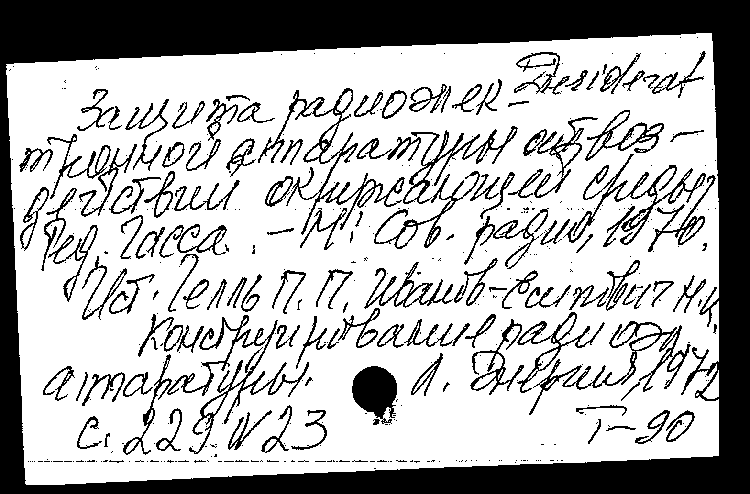 Desiderat
Защита радиоэлек-
тронной аппаратуры от воз-
действий окружающей среды
Ред. Гасса. - М.: Сов. радио, 1970.
Ист. Гелль П. П. Иванов-Есипович Н.К.
Конструирование радиоэл.
аппаратуры. Л. Энергия, 1972
с. 229 N 23 Т-90